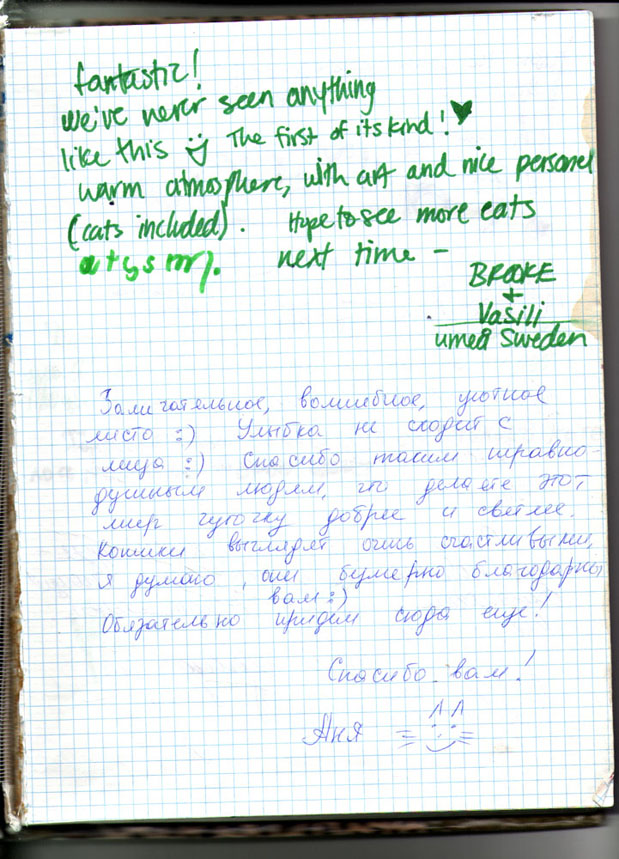 fantastic!
we've never seen anything
like this The first of its kind! ♥
warm atmosphere, with art and nice personel
(cats included). Hope to see more cats
next time -
+
Vasili
umeå Sweden
Замичательное, волшебное, уютное
место :) Улыбка не сходит с
лица :) Спасибо таким неравно-
душным людям, что делаете этот
мир чуточку добрее и светлее.
Кошки выглядят очень счастливыми,
я думаю, они безмерно благодарны
вам :)
Обязательно придем сюда еще!
Спасибо вам!
Аня